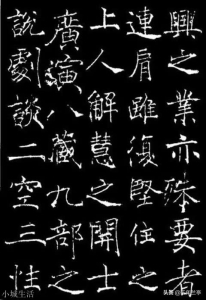 興之業亦殊要者
連肩雖復堅住之
上人解慧之開士
廣演八藏九部之
說劇談二空三性
小城生活